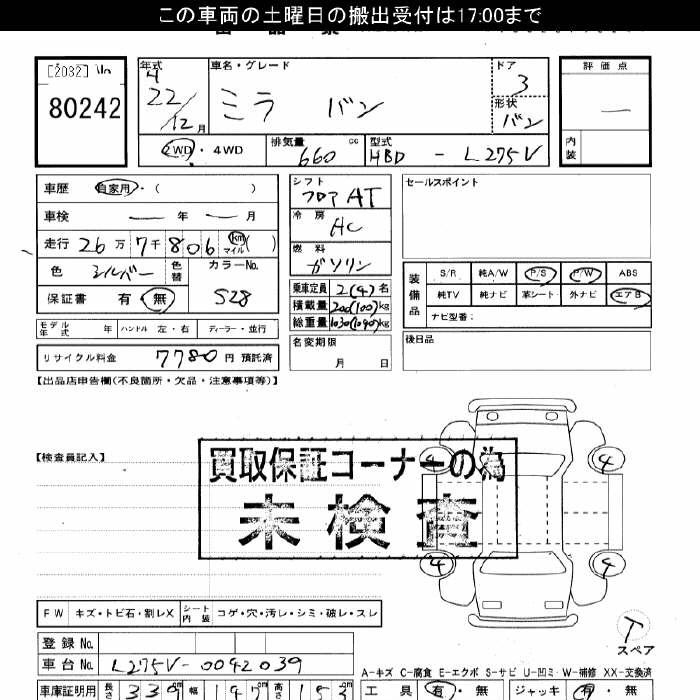 この車両の土曜日の搬出受付は17:00まで
[2032]
80242
年式 車名・グレード ドア 評価点
22/12月 ミラ バン 3 —
形状 バン
内装
2WD・4WD 排気量 660 cc 型式 HBD - L275V
車歴 自家用・( )
車検 — 年 — 月
走行 26万7千806 km マイル ( )
色 シルバー 色替 カラーNo. S28
保証書 有・無
モデル年式 年 ハンドル 左・右 ディーラー・並行
リサイクル料金 7780 円 預託済
シフト フロア AT
冷房 AC
燃料 ガソリン
乗車定員 2(4)名
積載量 200(100)kg
総重量 1030(1040)kg
名変期限 月 日
セールスポイント
装備品 S/R 純A/W P/S P/W ABS
純TV 純ナビ 革シート 外ナビ エアB
ナビ型番:
後日品
【出品店申告欄(不良箇所・欠品・注意事項等)】
【検査員記入】
買取保証コーナーの為
未検査
4 4
4 4
FW キズ・トビ石・割レX シート内装 コゲ・穴・汚レ・シミ・破レ・スレ
T
スペア
登録No.
車台No. L275V-0042039
A-キズ C-腐食 E-エクボ S-サビ U-凹ミ W-補修 XX-交換済
車庫証明用 長さ 339cm 幅 147cm 高さ 153cm 工具 有・無 ジャッキ 有・無